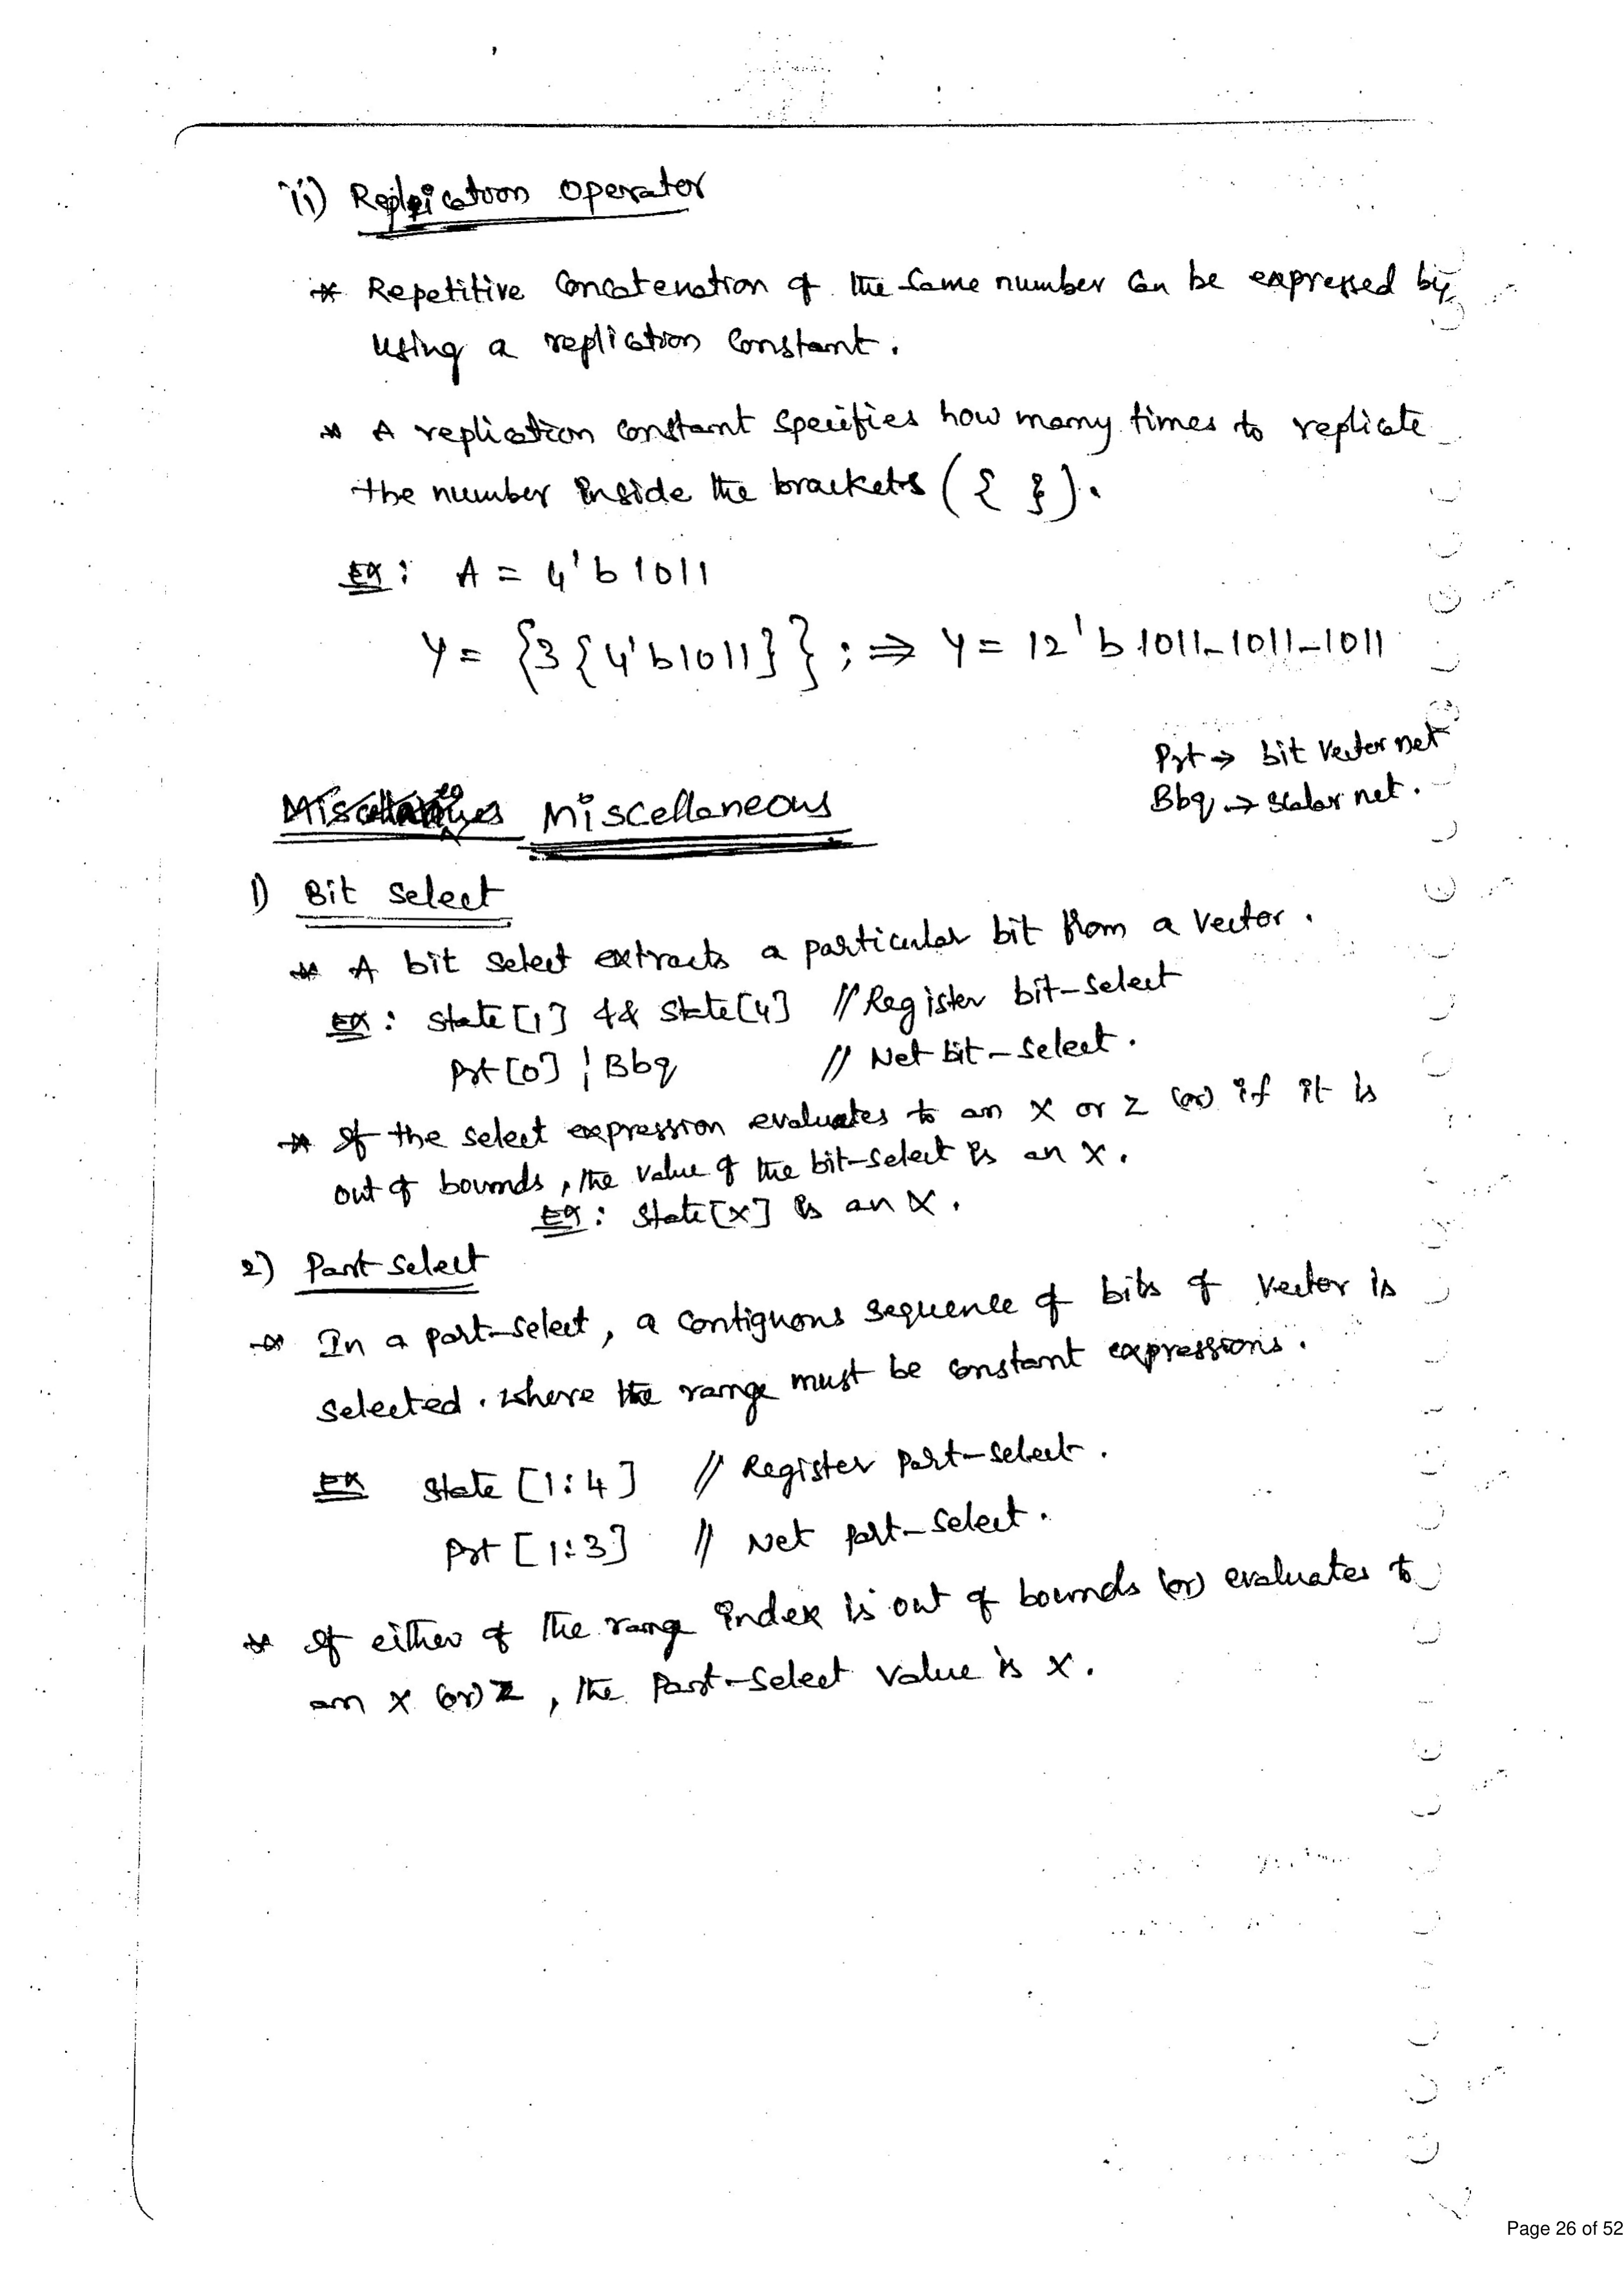 ii) Replication operator
* Repetitive Concatenation of the Same number Can be expressed by
using a replication Constant.
* A replication Constant Specifies how many times to replicate
the number inside the brackets ({ }).
Ex: A = 4'b1011
Y = {3{4'b1011}}; ⇒ Y = 12'b1011_1011_1011
Prt → bit Vector net
Bbq → Scalar net.
Miscellaneous
1) Bit Select
* A bit select extracts a particular bit from a vector.
Ex: State[1] && State[4] // Register bit-select
Prt[0] | Bbq // Net bit-select.
* If the select expression evaluates to an X or Z (or) if it is
out of bounds, the value of the bit-select is an X.
Ex: State[X] is an X.
2) Part Select
* In a part-select, a Contiguous sequence of bits of vector is
selected. where the range must be constant expressions.
Ex State [1:4] // Register Part-select.
Prt [1:3] // Net part-select.
* If either of the range index is out of bounds (or) evaluates to
an X (or) Z, the Part-Select value is X.
Page 26 of 52